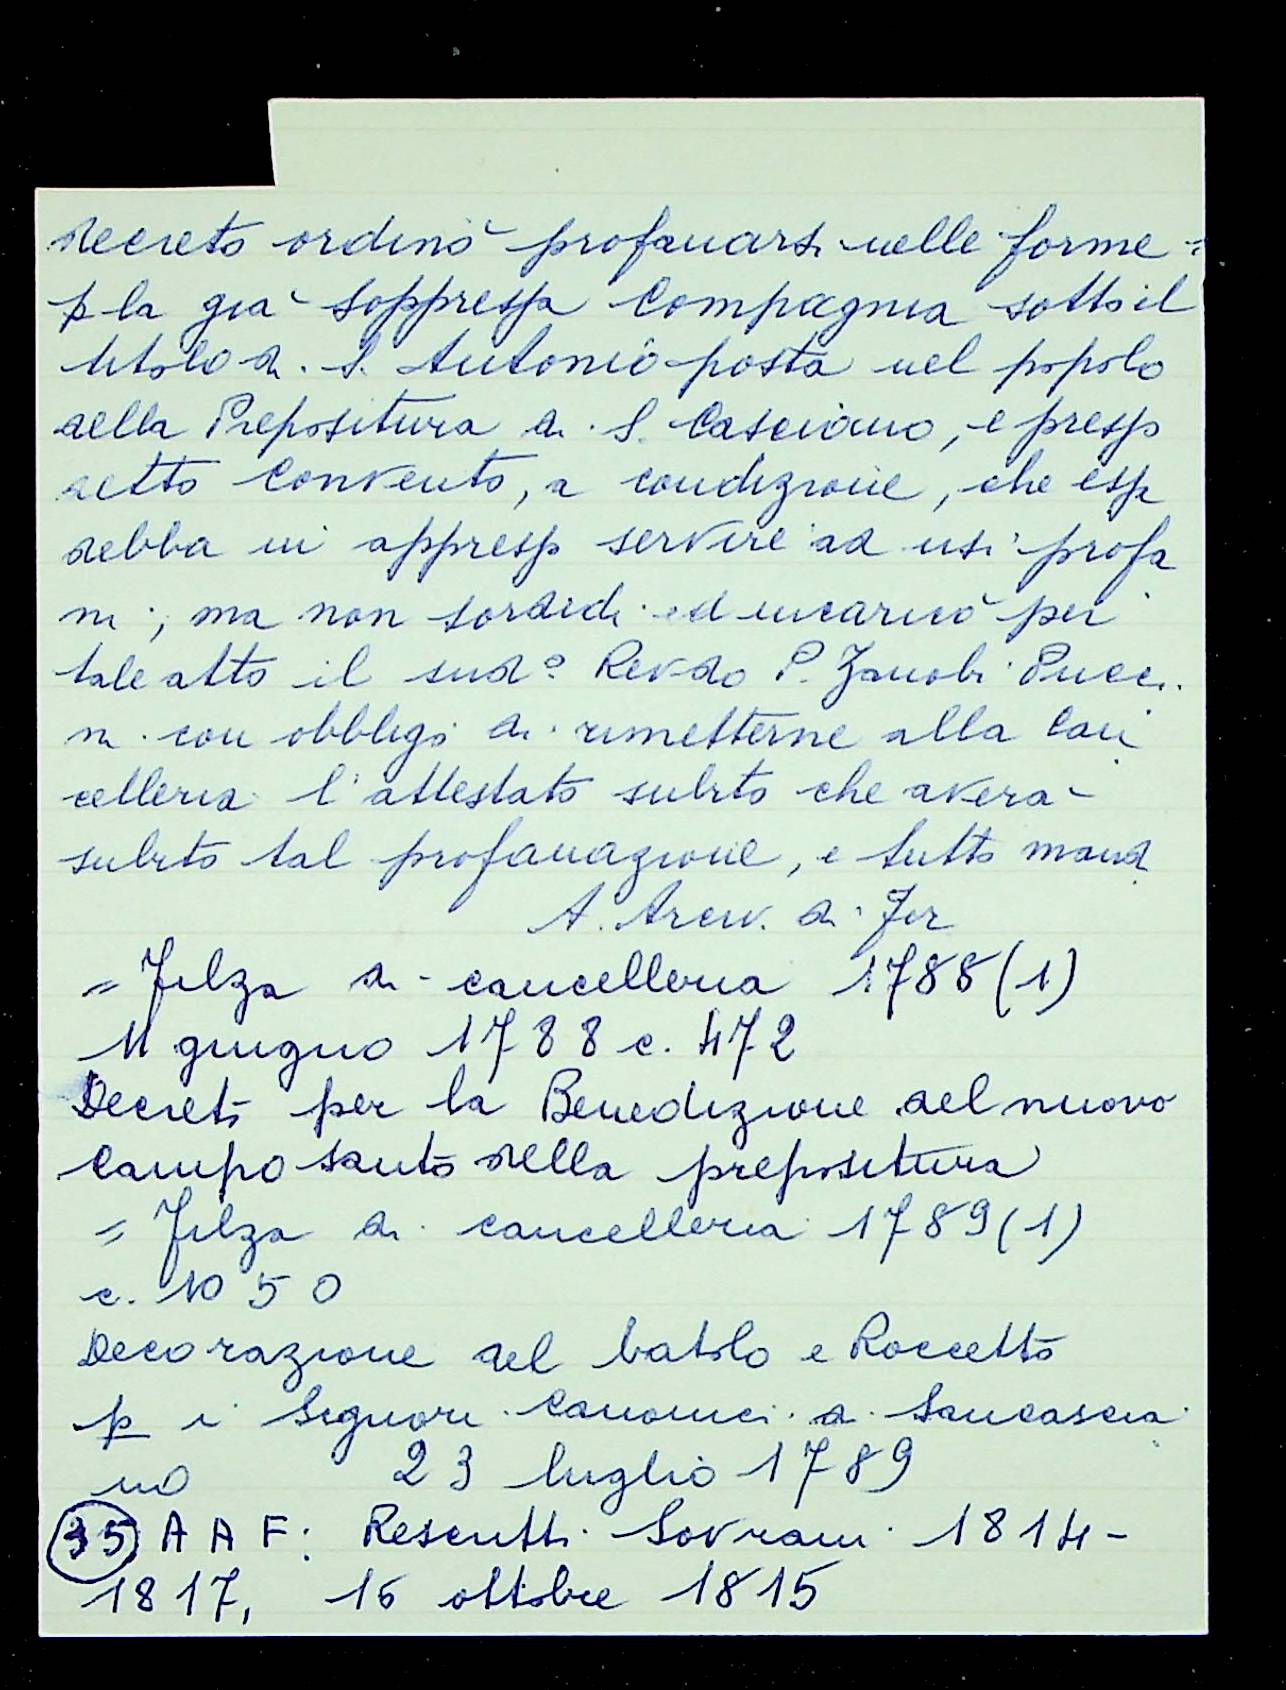 decreto ordinò profanarsi nelle forme =
p la già soppressa Compagnia sotto il
titolo di S. Antonio posta nel popolo
della Prepositura di S. Casciano, e presso
detto Convento, a condizione, che essa
debba in appresso servire ad usi profa
ni; ma non sordidi ed incaricò per
tale atto il sudº Revdo P. Zanobi Pucci
ni con obbligo di rimetterne alla Can
celleria l'attestato subito che averà
subito tal profanazione, e tutto mand
A. Arciv. di Fir
= Filza di cancelleria 1788 (1)
11 giugno 1788 c. 472
Decreto per la Benedizione del nuovo
Campo santo della prepositura
= Filza di cancelleria 1789 (1)
c. 1050
Decorazione del batolo e Roccetto
p i Signori Canonici di Sancascia
no 23 luglio 1789
35 AAF: Rescritti Sovrani 1814-
1817, 16 ottobre 1815